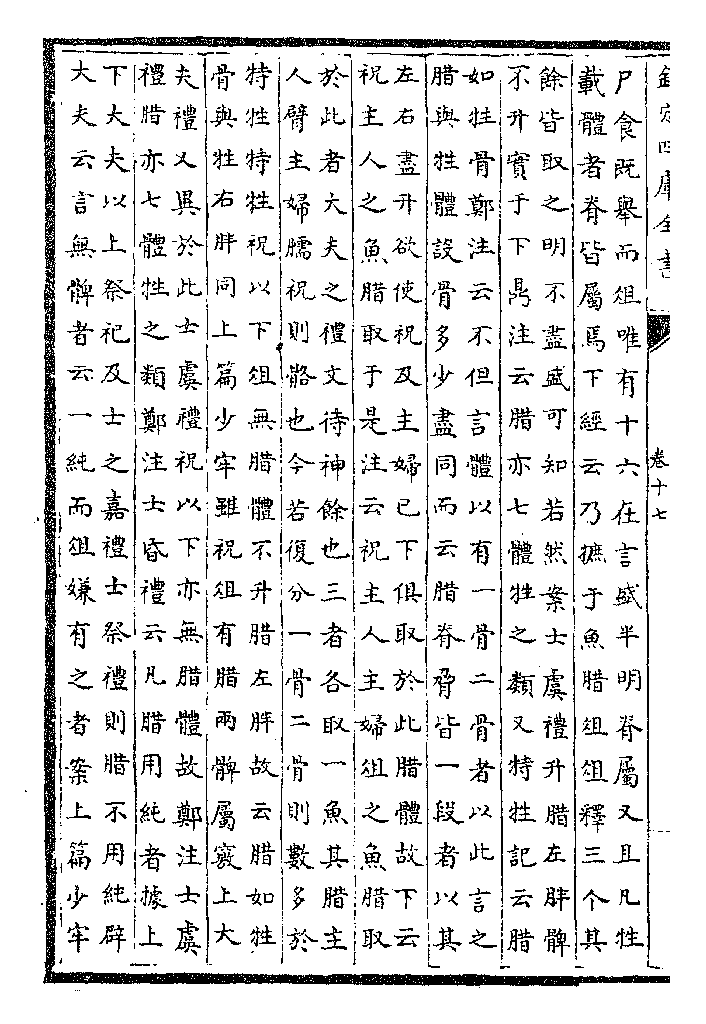 欽定四庫全書 卷十七
尸食既舉而俎唯有十六在言盛半明脊屬又且凡牲
載體者脊皆屬焉下經云乃摭于魚腊俎俎釋三个其
餘皆取之明不盡盛可知若然案士虞禮升腊左胖髀
不升實于下鼎注云腊亦七體牲之類又特牲記云腊
如牲骨鄭注云不但言體以有一骨二骨者以此言之
腊與牲體設骨多少盡同而云腊脊脅皆一段者以其
左右盡升欲使祝及主婦已下俱取於此腊體故下云
祝主人之魚腊取于是注云祝主人主婦俎之魚腊取
於此者大夫之禮文待神餘也三者各取一魚其腊主
人臂主婦臑祝則骼也今若復分一骨二骨則數多於
特牲特牲祝以下俎無腊體不升腊左胖故云腊如牲
骨與牲右胖同上篇少牢雖祝俎有腊兩髀屬竅上大
夫禮又異於此士虞禮祝以下亦無腊體故鄭注士虞
禮腊亦七體牲之類鄭注士昏禮云凡腊用純者據上
下大夫以上祭祀及士之嘉禮士祭禮則腊不用純辟
大夫云言無髀者云一純而俎嫌有之者案上篇少牢